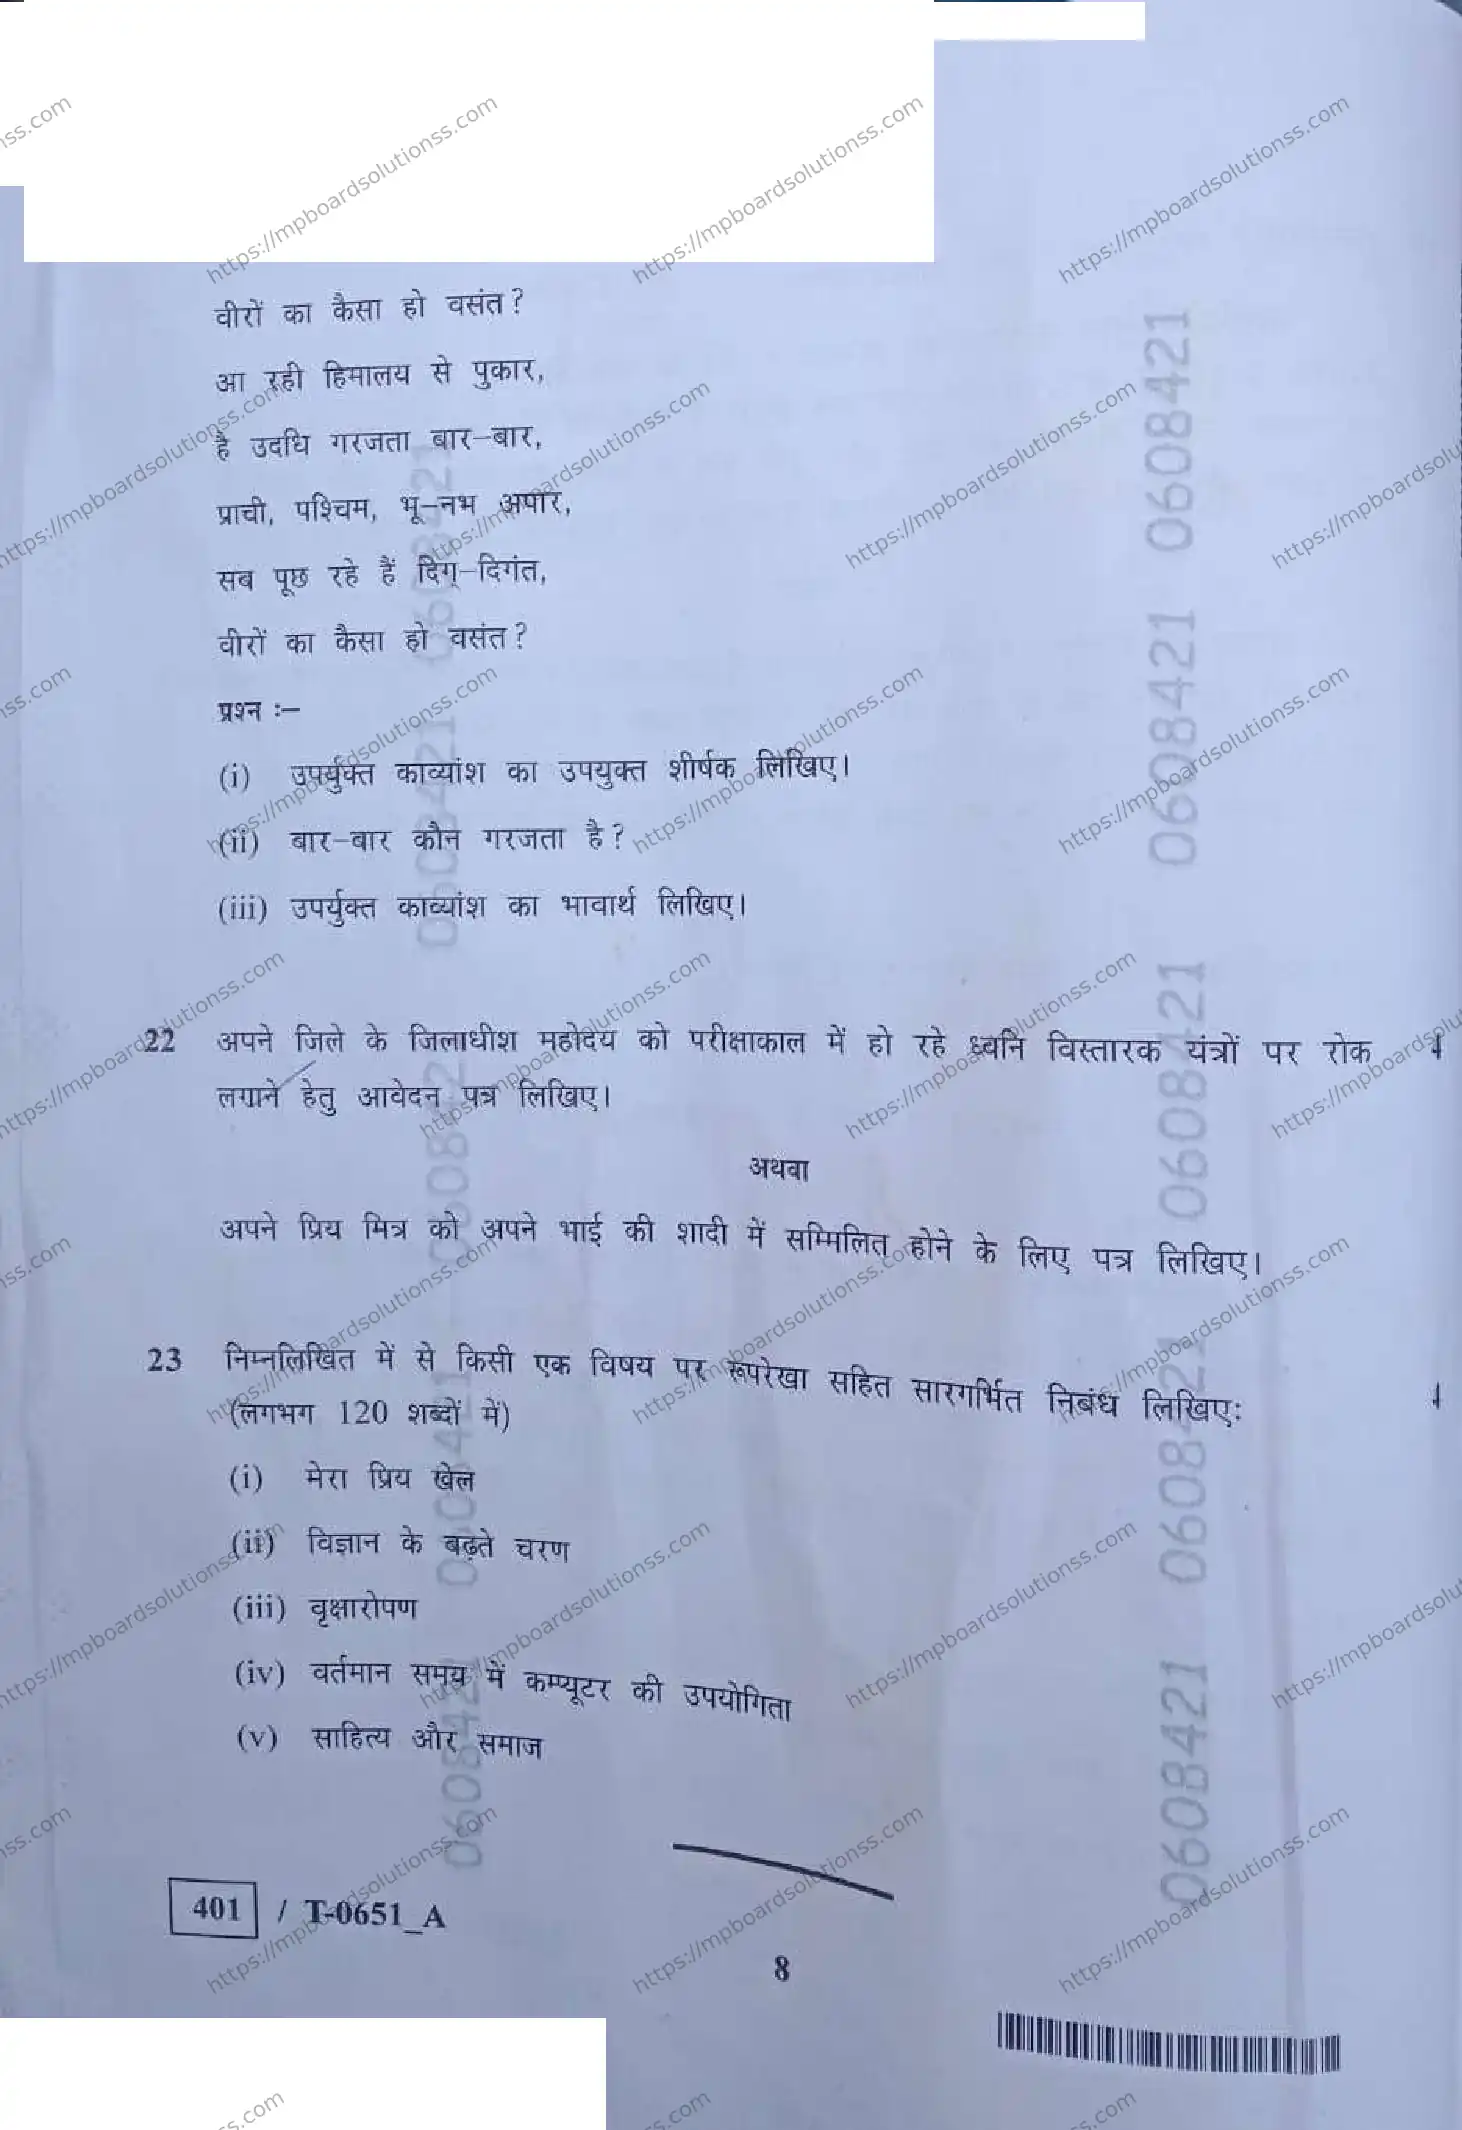 वीरों का कैसा हो वसंत?
आ रही हिमालय से पुकार,
है उदधि गरजता बार-बार,
प्राची, पश्चिम, भू-नभ अपार,
सब पूछ रहे हैं दिग्-दिगंत,
वीरों का कैसा हो वसंत?
प्रश्न :-
(i) उपर्युक्त काव्यांश का उपयुक्त शीर्षक लिखिए।
(ii) बार-बार कौन गरजता है?
(iii) उपर्युक्त काव्यांश का भावार्थ लिखिए।
22 अपने जिले के जिलाधीश महोदय को परीक्षाकाल में हो रहे ध्वनि विस्तारक यंत्रों पर रोक
लगाने हेतु आवेदन पत्र लिखिए।
अथवा
अपने प्रिय मित्र को अपने भाई की शादी में सम्मिलित होने के लिए पत्र लिखिए।
23 निम्नलिखित में से किसी एक विषय पर रूपरेखा सहित सारगर्भित निबंध लिखिए:
(लगभग 120 शब्दों में)
(i) मेरा प्रिय खेल
(ii) विज्ञान के बढ़ते चरण
(iii) वृक्षारोपण
(iv) वर्तमान समय में कम्प्यूटर की उपयोगिता
(v) साहित्य और समाज
401 / T-0651_A
8
0608421 0608421 0608421 0608421 0608421
https://mpboardsolutionss.com